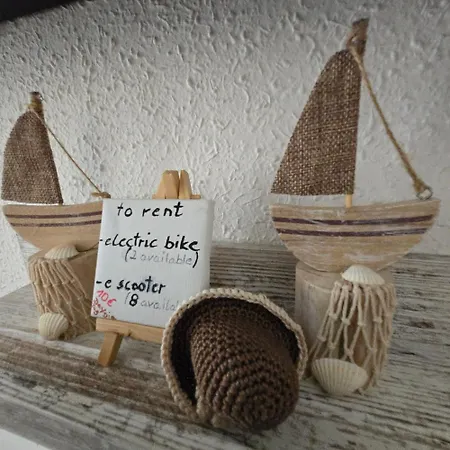 to rent
-electric bike
(2 available)
-e scooter
10€
(8 available